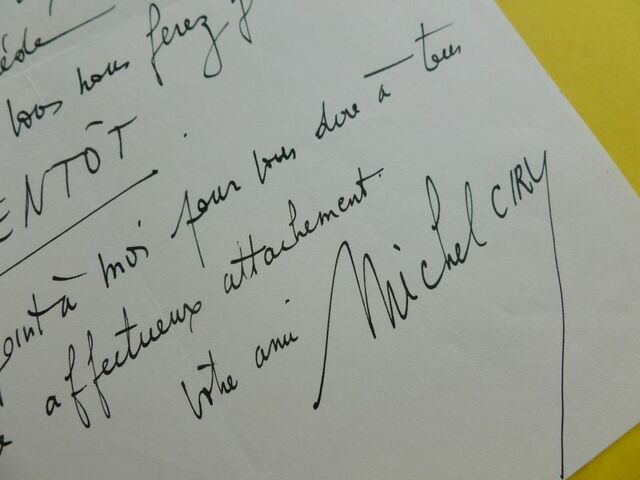 vous nous ferez
ENTÔT.
joint à moi pour vous dire à tous
affectueux attachement.
Votre ami Michel CIRY